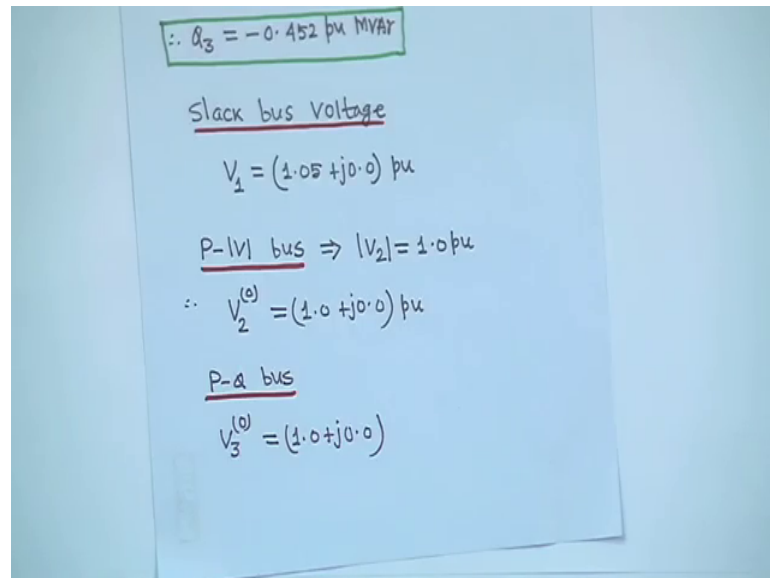 ∴ Q₃ = -0.452 pu MVAr
Slack bus voltage
V₁ = (1.05 + j0.0) pu
P-|V| bus ⇒ |V₂| = 1.0 pu
∴ V₂⁽⁰⁾ = (1.0 + j0.0) pu
P-Q bus
V₃⁽⁰⁾ = (1.0 + j0.0)